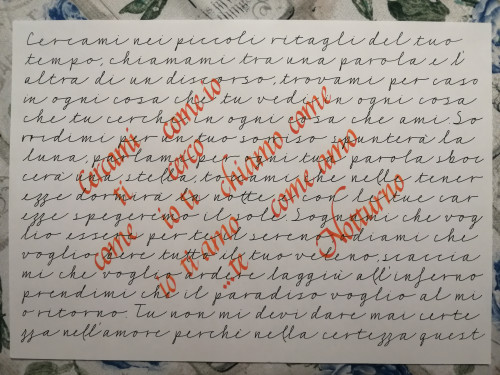 Cercami nei piccoli ritagli del tuo
tempo, chiamami tra una parola e l'
altra di un discorso, trovami per caso
in ogni cosa che tu vedi in ogni cosa
che tu cerchi in ogni cosa che ami. So
rridimi per un tuo sorriso spunterà la
luna, parlami per ogni tua parola sboc
cerà una stella, toccami che nelle tener
ezze dormirà la notte e con le tue car
ezze spegnerò il sole. Sognami che vog
lio essere per te il sereno, odiami che
voglio bere tutto il tuo veleno, scaccia
mi che voglio ardere laggiù all'inferno
prendimi che il paradiso voglio al mi
o ritorno. Tu non mi devi dare mai certe
zza nell'amore perché nella certezza quest
cercami come io
ti cerco
come io ti chiamo come
io ti amo come amo
...te
Notturno